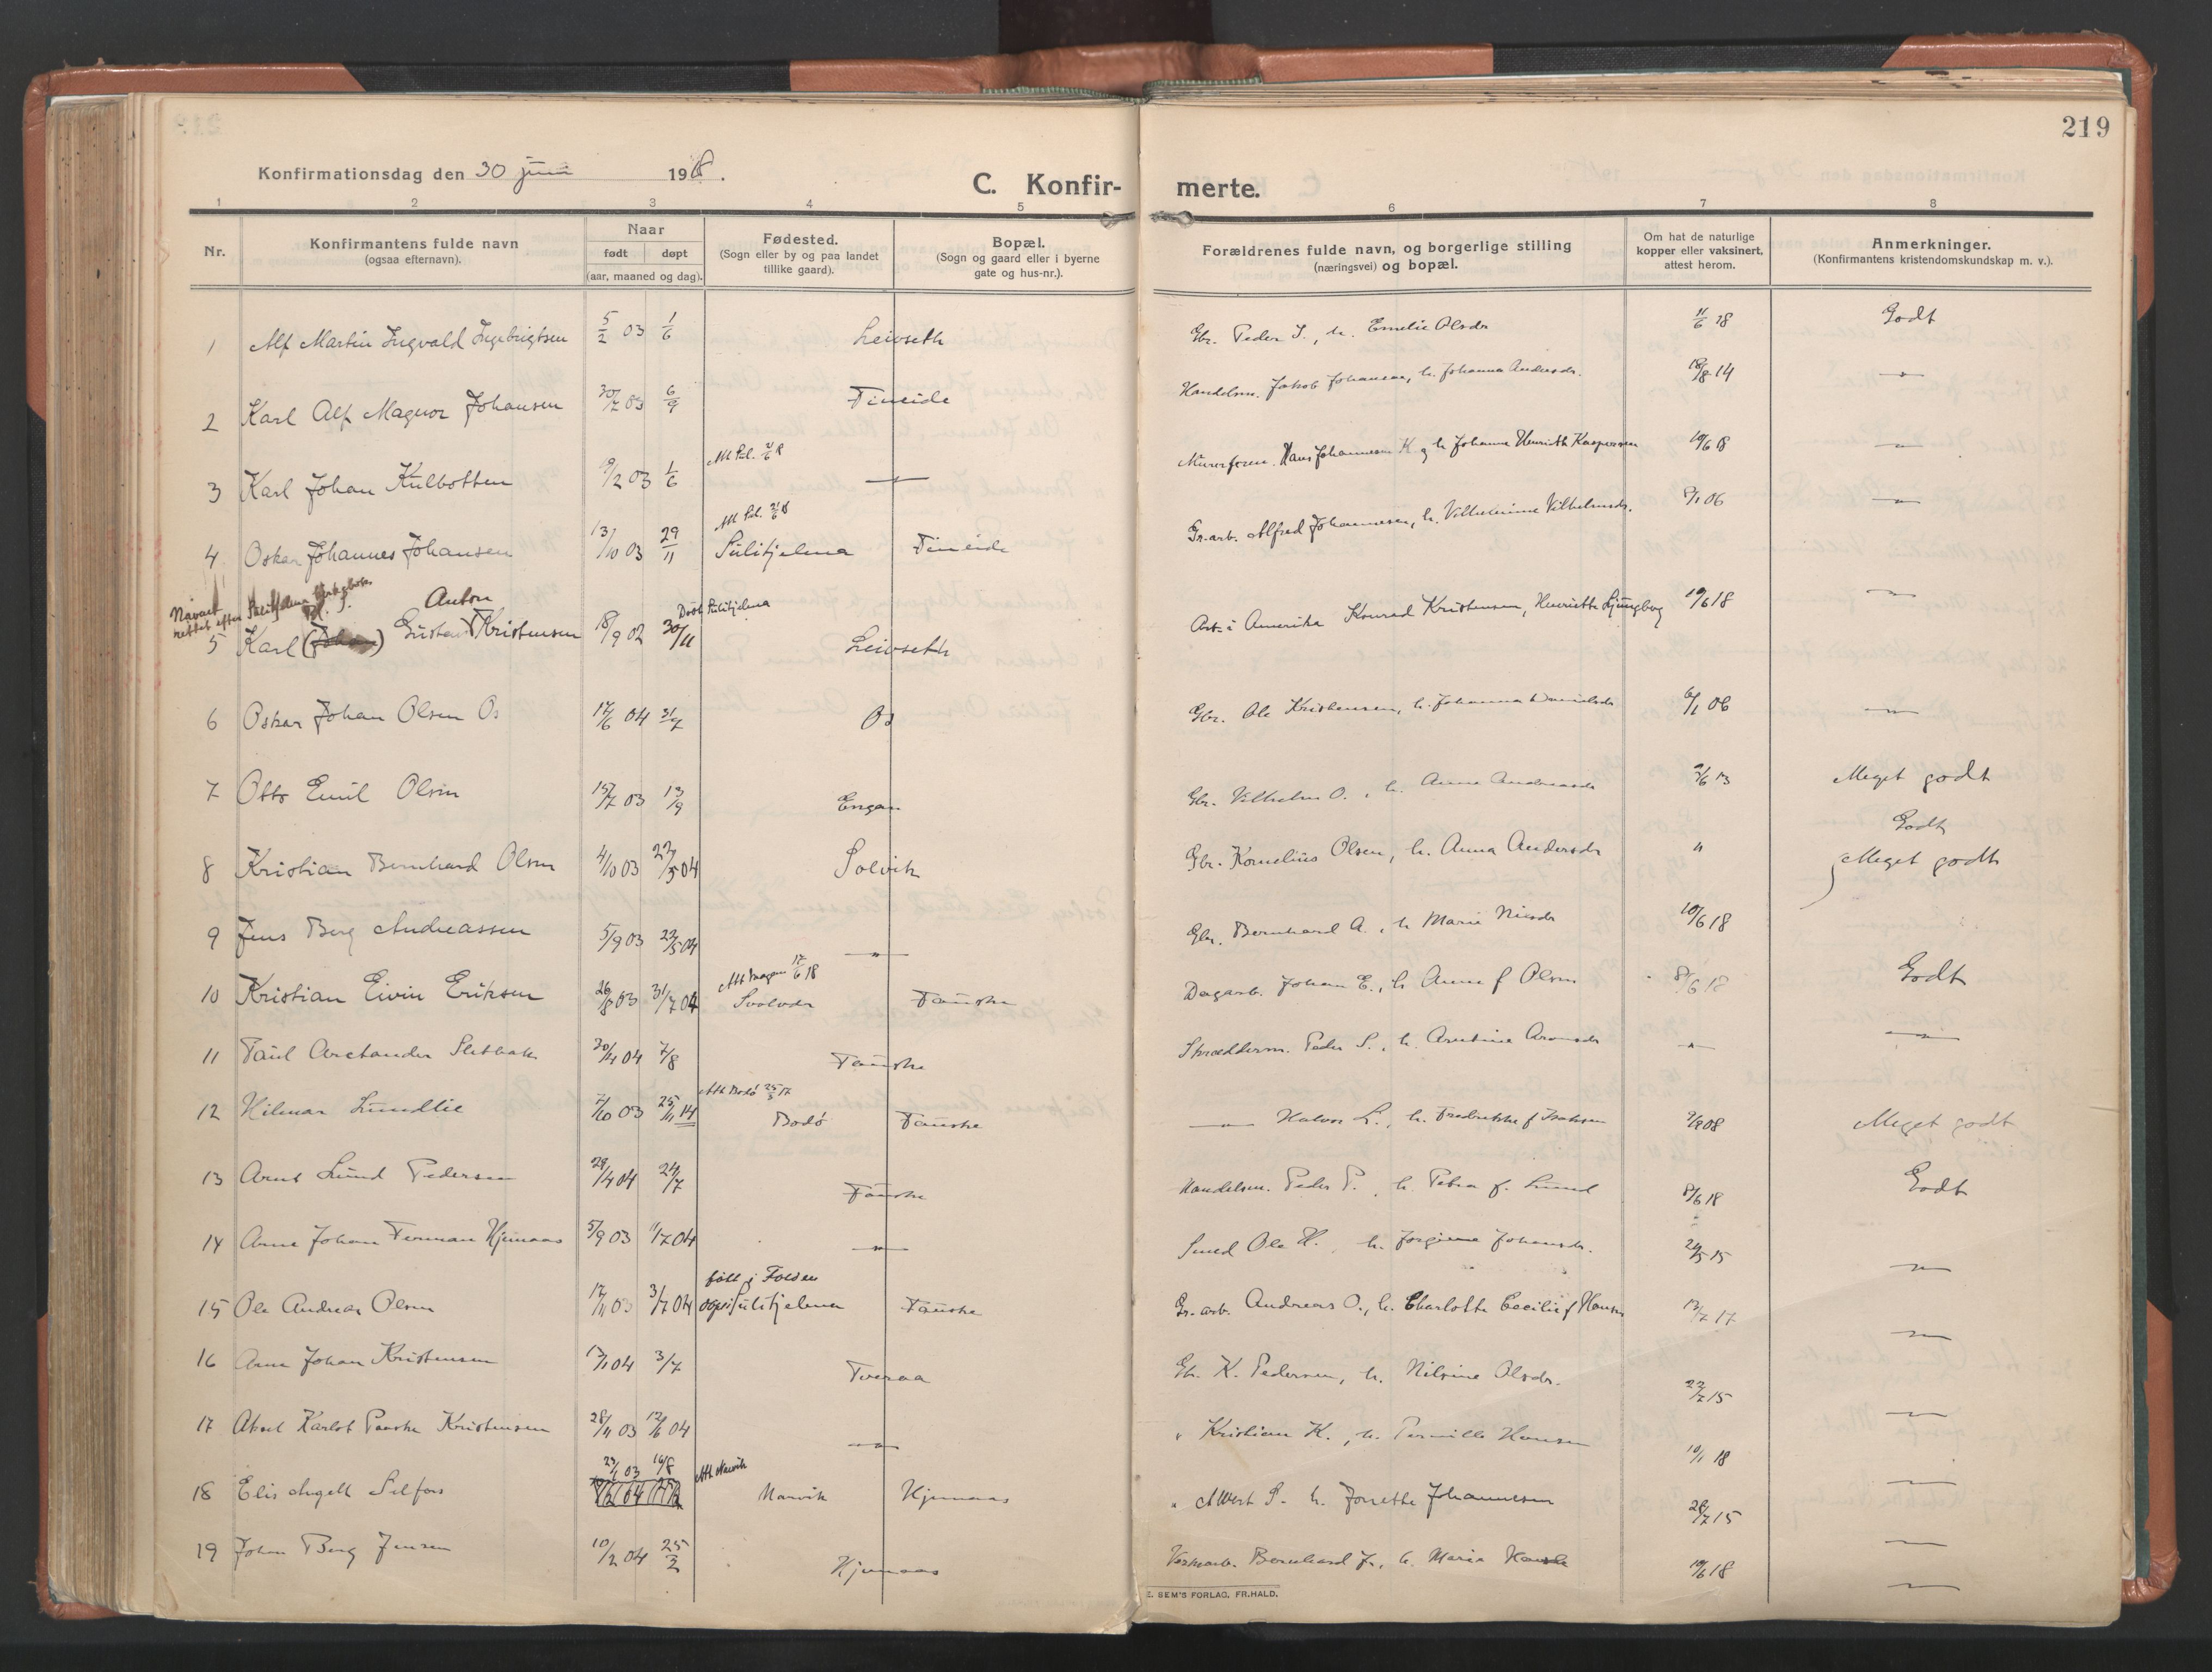 219
Konfirmationsdag den 30 juni 1918.
C. Konfir-
merte.
1 2 3 4 5 6 7 8
Nr.
Konfirmantens fulde navn
(ogsaa efternavn).
Naar
født døpt
(aar, maaned og dag).
Fødested.
(Sogn eller by og paa landet
tillike gaard).
Bopæl.
(Sogn og gaard eller i byerne
gate og hus-nr.).
Forældrenes fulde navn, og borgerlige stilling
(næringsvei) og bopæl.
Om hat de naturlige
kopper eller vaksinert,
attest herom.
Anmerkninger.
(Konfirmantens kristendomskundskap m. v.).
1 Alf Martin Ingvald Ingebrigtsen 5/2 03 1/6 Leivseth Gbr. Peder I., h. Emelie Olsdr 11/6 18 Godt
2 Karl Alf Magnor Johansen 30/7 03 6/9 Fineide Handelsm. Jakob Johansen, h. Johanna Andersdr. 18/8 14 —"—
Att Sul. 21/6 18
3 Karl Johan Kulbotten 19/2 03 1/6 —"— Murerform. Hans Johannesen K. og h. Johanne Henriette Kaspersen 19/6 18 —"—
Att Sul. 21/6 18
4 Oskar Johannes Johansen 13/10 03 29/11 Sulitjelma Fineide Gr.arb. Alfred Johannesen, h. Vilhelmine Vilhelmsdr. 8/1 06 —"—
Navnet rettet efter Sulitjelma kirkebok
Anton
Døpt Sulitjelma
5 Karl (Johan) Gustav Kristensen 18/9 02 30/11 Leivseth Arb. i Amerika Konrad Kristensen, Henriette Ljungberg 19/6 18 —"—
6 Oskar Johan Olsen Os 17/6 04 31/7 Os Gbr. Ole Kristensen, h. Johanna Danielsdr 6/1 06 —"—
7 Otto Emil Olsen 15/7 03 13/9 Engan Gbr. Vilhelm O., h. Anna Andreasdr 2/6 13 Meget godt
Godt
8 Kristian Bernhard Olsen 4/10 03 22/5 04 Solvik Gbr. Kornelius Olsen, h. Anna Andersdr " Meget godt
9 Jens Berg Andreassen 5/9 03 22/5 04 —"— Gbr. Bernhard A., h. Marie Nilsdr 10/6 18
17/6 18
10 Kristian Eivin Eriksen 26/8 03 31/7 04 Svolvær Fauske Dagarb. Johan E., h. Anne f Olsen 8/6 18 Godt
11 Paul Arctander Sletbak 30/4 04 7/8 Fauske Skrædderm. Peder S., h. Arntine Aronsdr —"— —"—
Att Bodø 25/3 17
12 Hilmar Lundlie 7/10 03 25/11 14 Bodø Fauske —"— Halvor L., h. Fredrikke f Isaksen 9/9 08 Meget godt
13 Arnt Lund Pedersen 29/4 04 24/7 Fauske Handelsm. Peder P., h. Petra f. Lund 8/6 18 Godt
14 Arne Johan Ferman Hjemaas 5/9 03 1/7 04 —"— Smed Ole H., h. Jorgine Johansdr. 20/5 15 —"—
født i Folden
15 Ole Andreas Olsen 17/11 03 3/7 04 Sulitjelma Fauske Gr. arb. Andreas O., h. Charlotte Cecilie f Hansen 13/7 17 —"—
16 Arne Johan Kristensen 13/1 04 3/7 Tveraa Gbr. K. Pedersen, h. Nilsine Olsdr. 22/7 15 —"—
17 Aksel Karlot Fauske Kristensen 28/11 03 12/6 04 —"— " Kristian K., h. Pernille Hansen 10/1 18 —"—
23/1 03 16/8 Att Narvik
18 Elis Angell Selfors Narvik Hjemaas " Alvert S. h. Jonette Johannesen 26/7 15 —"—
19 Johan Berg Jensen 10/2 04 25/2 Hjemaas Veimarb. Bernhard J., h. Maria 19/6 18 —"—
E. SEM'S FORLAG, FR.HALD.